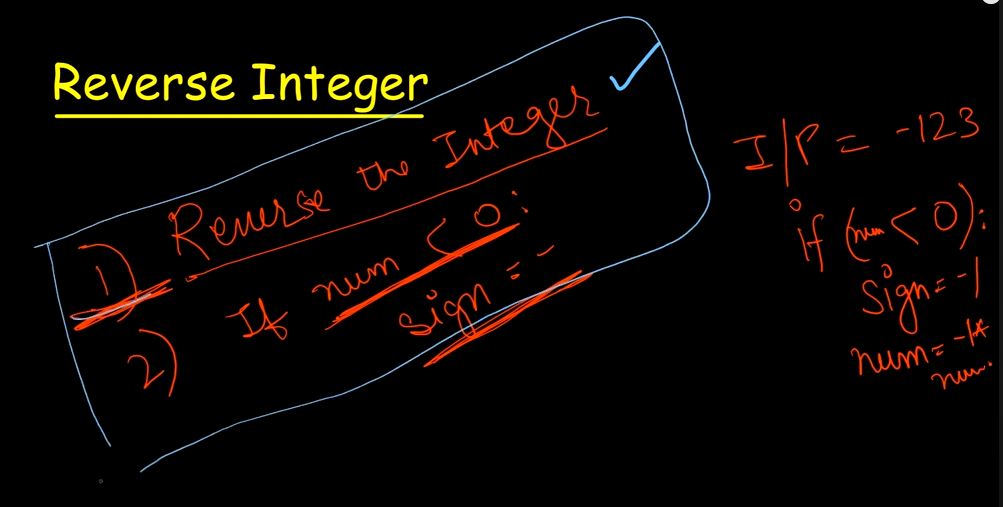 Reverse Integer
1) Reverse the Integer
2) If num < 0:
sign = -
I/P = -123
if (num < 0):
Sign = -1
num = -1*
num.